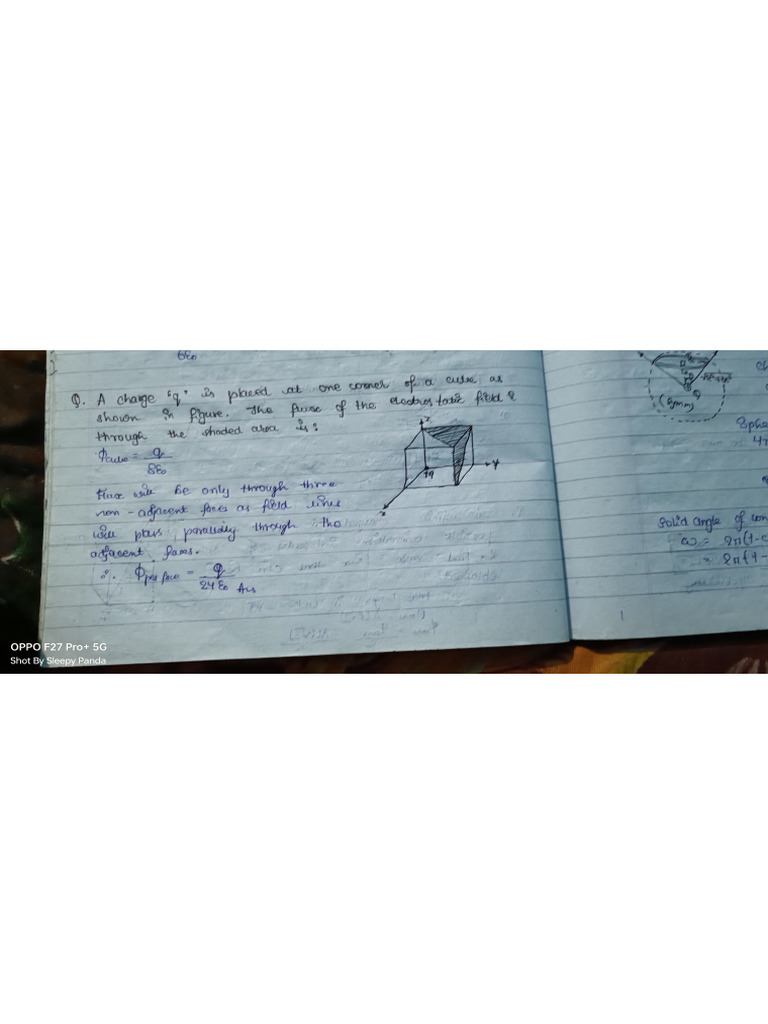 6ε₀
Q. A charge "q" is placed at one corner of a cube as
shown in figure. The flux of the electrostatic field E
through the shaded area is:
ϕcube = q
8ε₀
Flux will be only through three
non-adjacent faces as field lines
will pass parallelly through the
adjacent faces.
∴ ϕper face = q
24ε₀ Ans
z
Y
x
q
(Symm)
Sphe
Solid angle of con
ω = 2π(1-c
= 2π(1-
OPPO F27 Pro+ 5G
Shot By Sleepy Panda